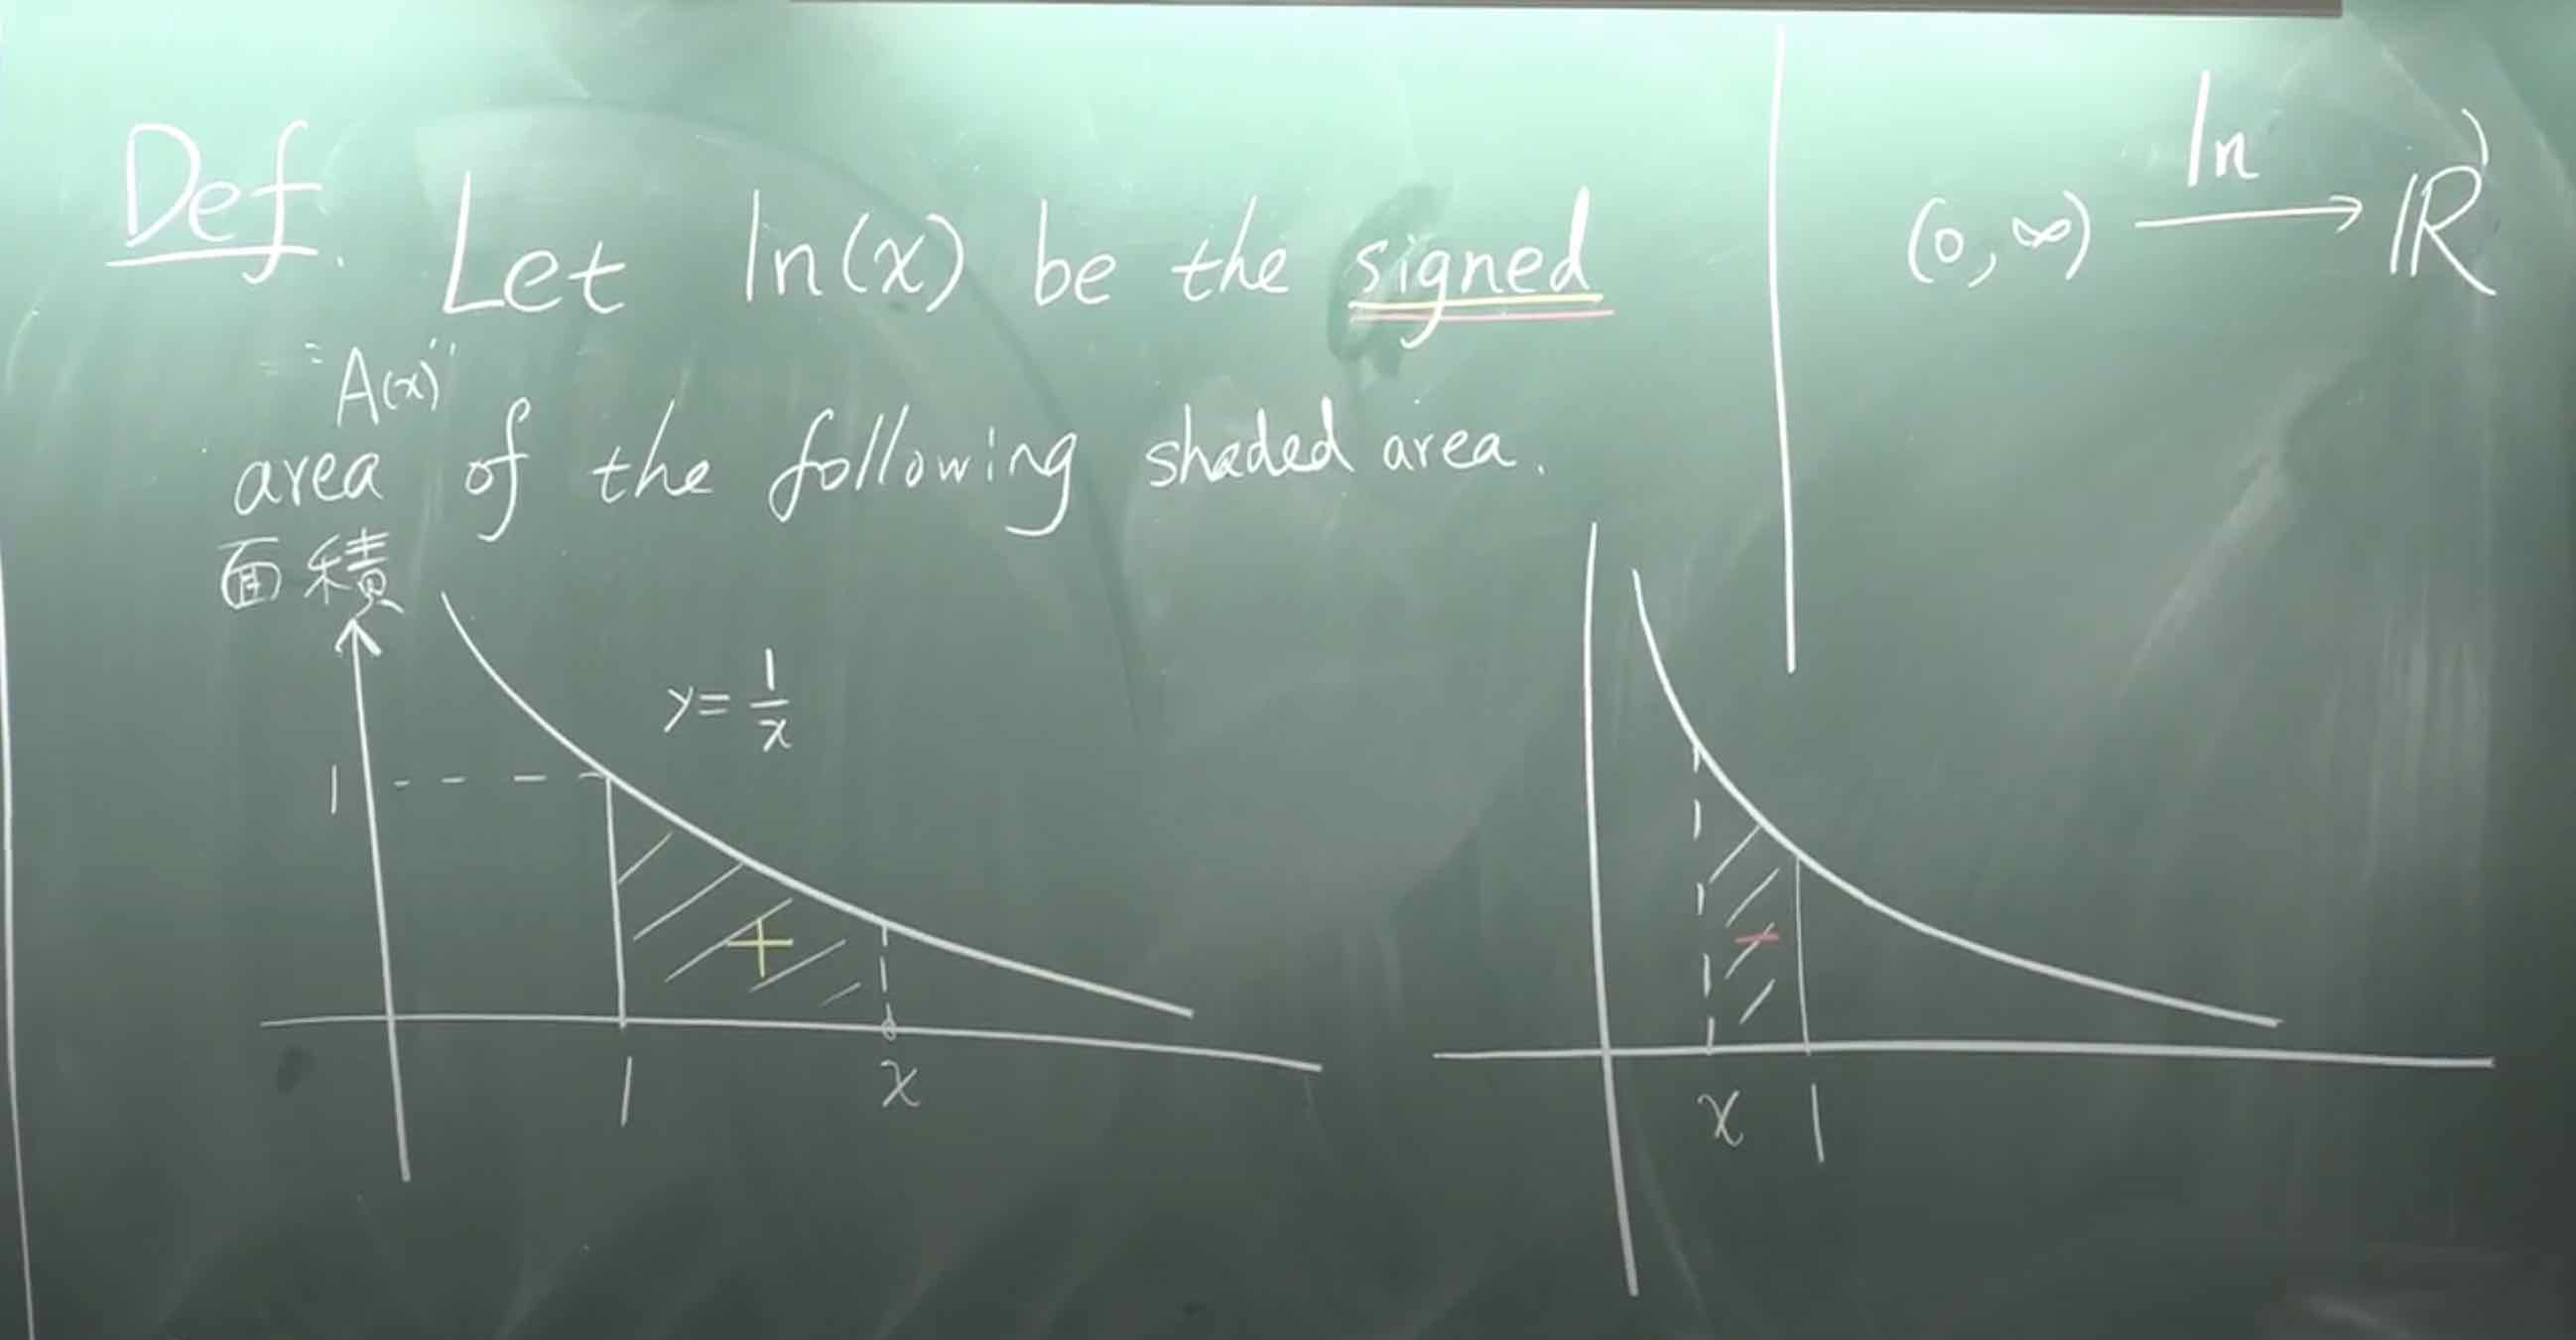 Def. Let ln(x) be the signed
"A(x)"
area of the following shaded area.
面積
(0, ∞) ln⟶ ℝ
y = 1/x
1
+
1
x
−
x
1